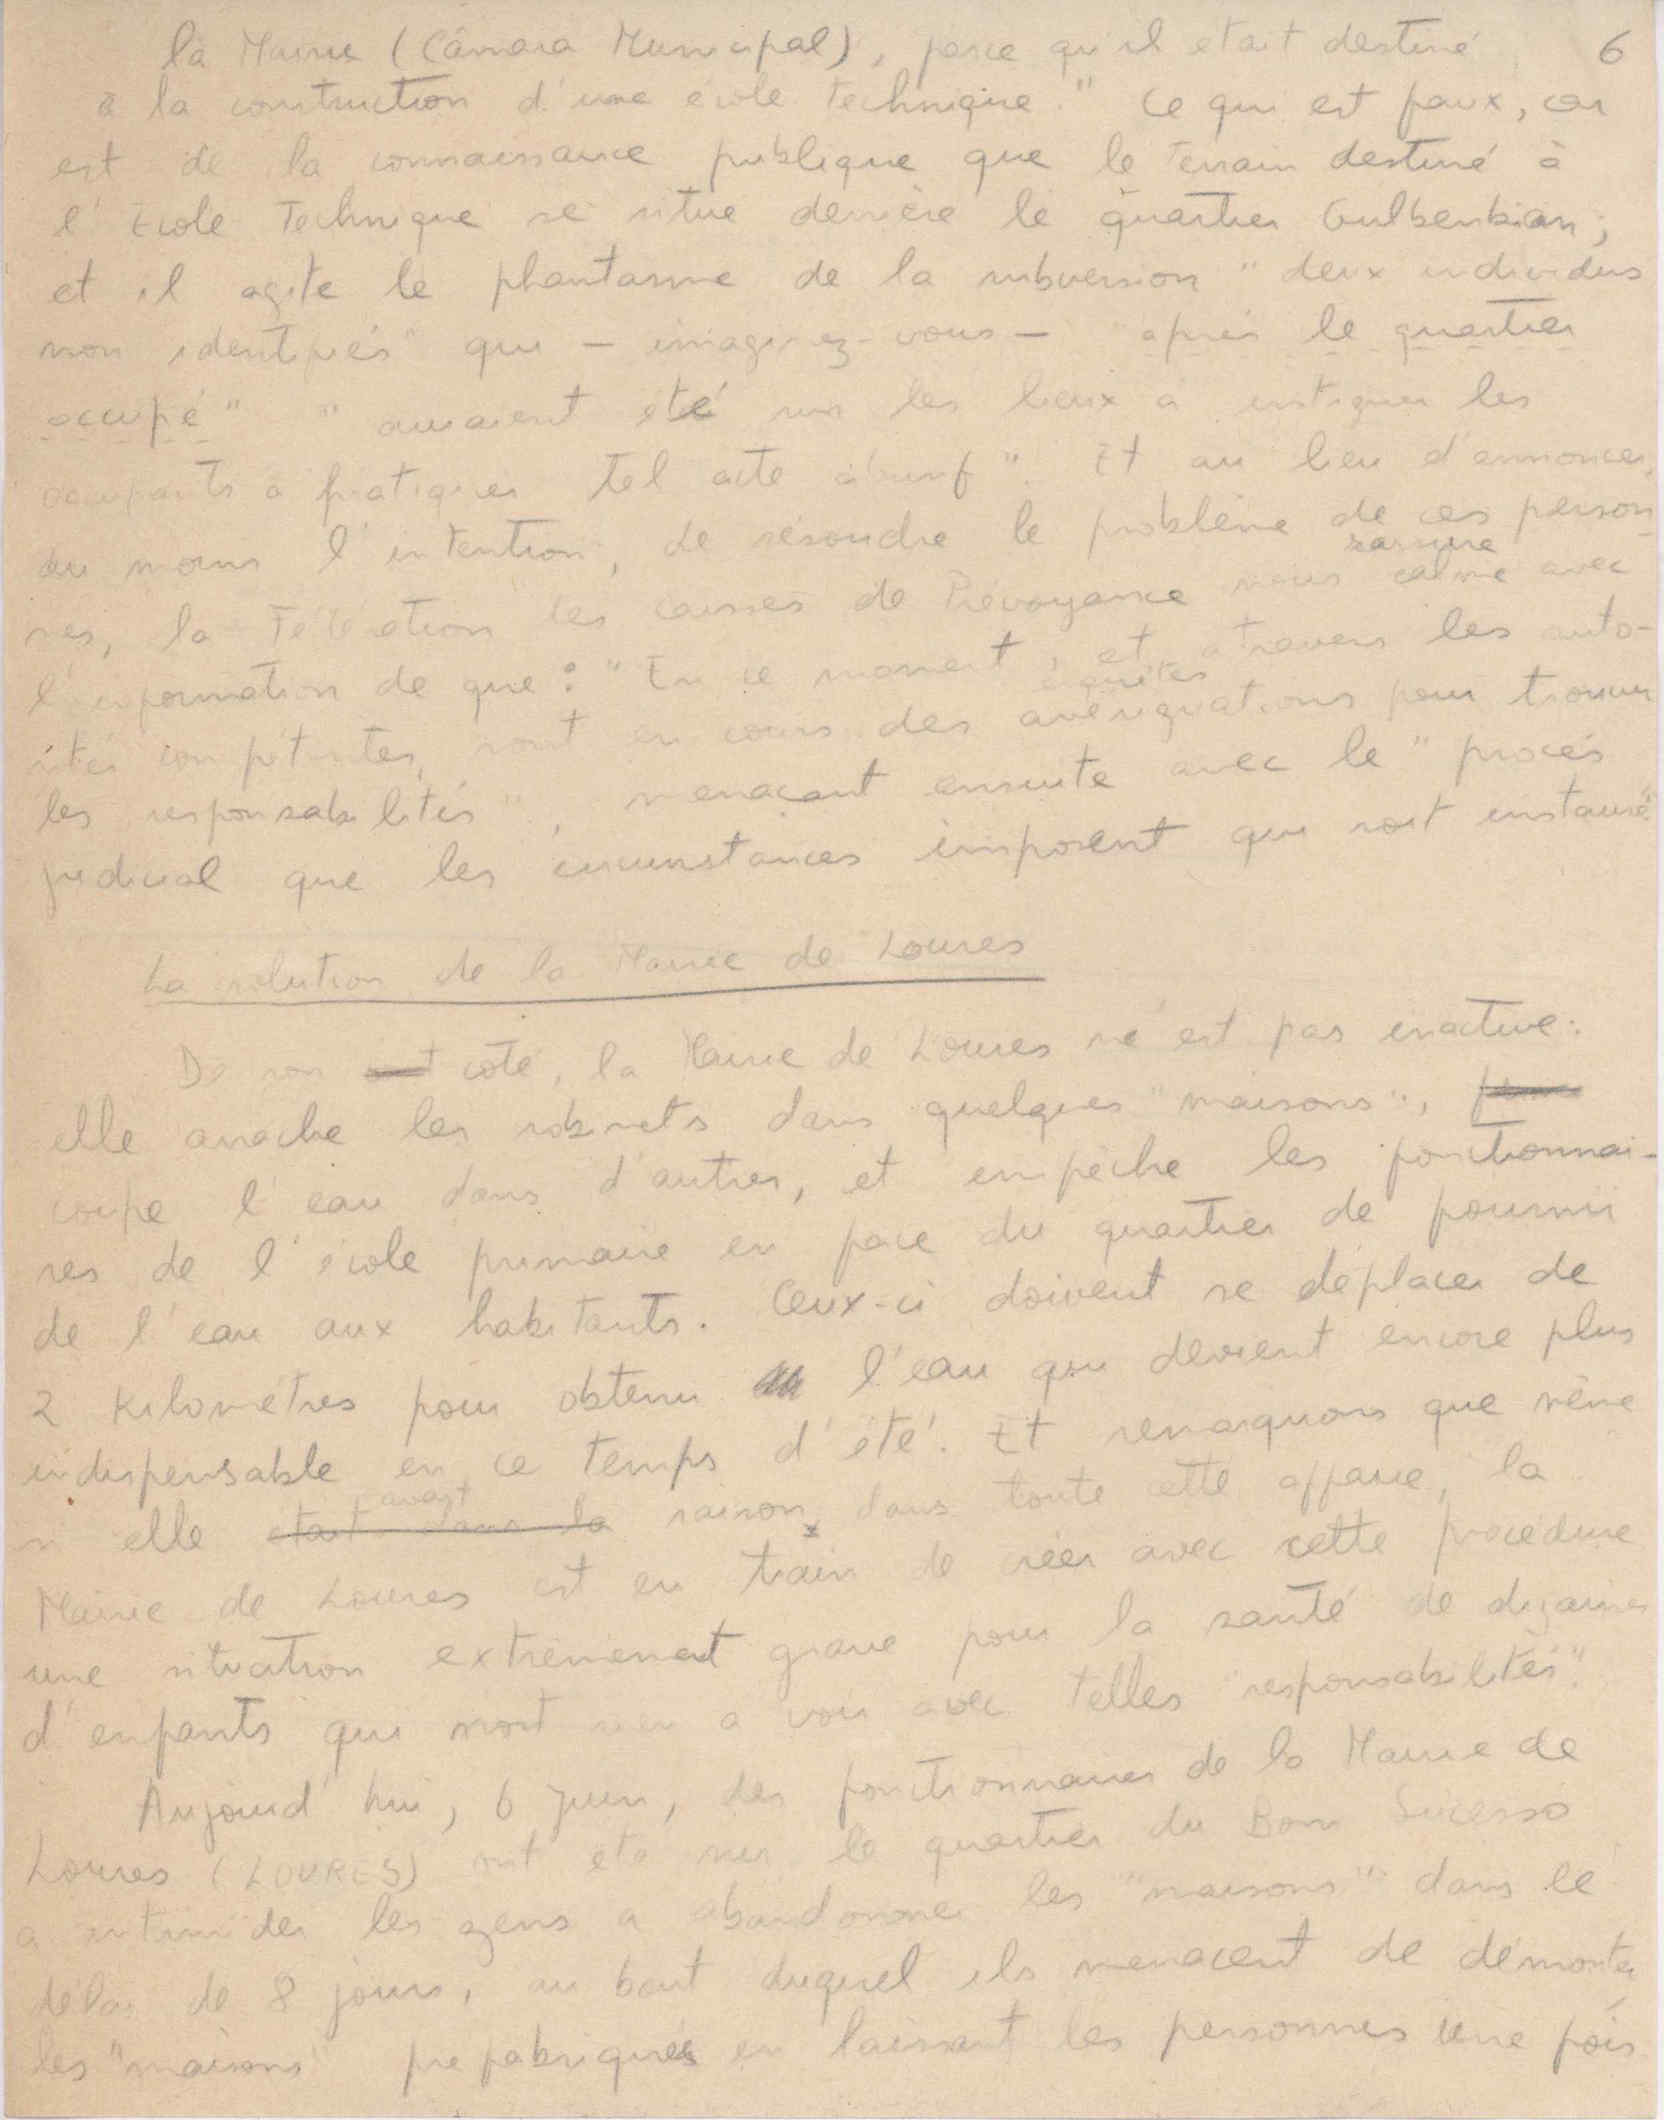 la Mairie (Câmara Municipal), parce qu'il etait destiné 6
à la construction d'une école technique." Ce qui est faux, car
est de la connaissance publique que le terrain destiné à
l'Ecole Technique se situe derrière le quartier Gulbenkian;
et il agite le phantasme de la subversion "deux individus
non identifiés" qui – imaginez-vous – "après le quartier
occupé" "auraient été sur les lieux à instiguer les
occupants a pratiquer tel acte abusif". Et au lieu d'annoncer,
au moins l'intention, de résoudre le problème de ces person-
rassure
nes, la Fédération des Caisses de Prévoyance nous calme avec
l'information de que: "En ce moment, et a travers les auto-
enquêtes
rités compétentes, sont en cours des averiguations pour trouver
les responsabilités", menaçant ensuite avec le "procés
judicial que les circunstances imposent qui soit instauré"
La solution de la Mairie de Loures
De son coté, la Mairie de Loures ne est pas inactive:
elle arrache les robinets dans quelques "maisons",
coupe l'eau dans d'autres, et empêche les fonctionnai-
res de l'école primaire en face du quartier de fournir
de l'eau aux habitants. Ceux-ci doivent se déplacer de
2 kilométres pour obtenir l'eau qui devient encore plus
indispensable en ce temps d'été. Et remarquons que même
avait
si elle était dans la raison, dans toute cette affaire, la
Mairie de Loures est en train de créer avec cette procédure
une situation extrêmement grave pour la santé de dizaines
d'enfants qui n'ont rien a voir avec telles "responsabilités".
Aujourd'hui, 6 Juin, des fonctionnaires de la Mairie de
Loures (LOURES) ont été sur le quartier du Bom Sucesso
a intimider les gens a abandonner les "maisons" dans le
délai de 8 jours, au bout duquel ils menacent de démonter
les "maisons" prefabriquées en laissant les personnes une fois